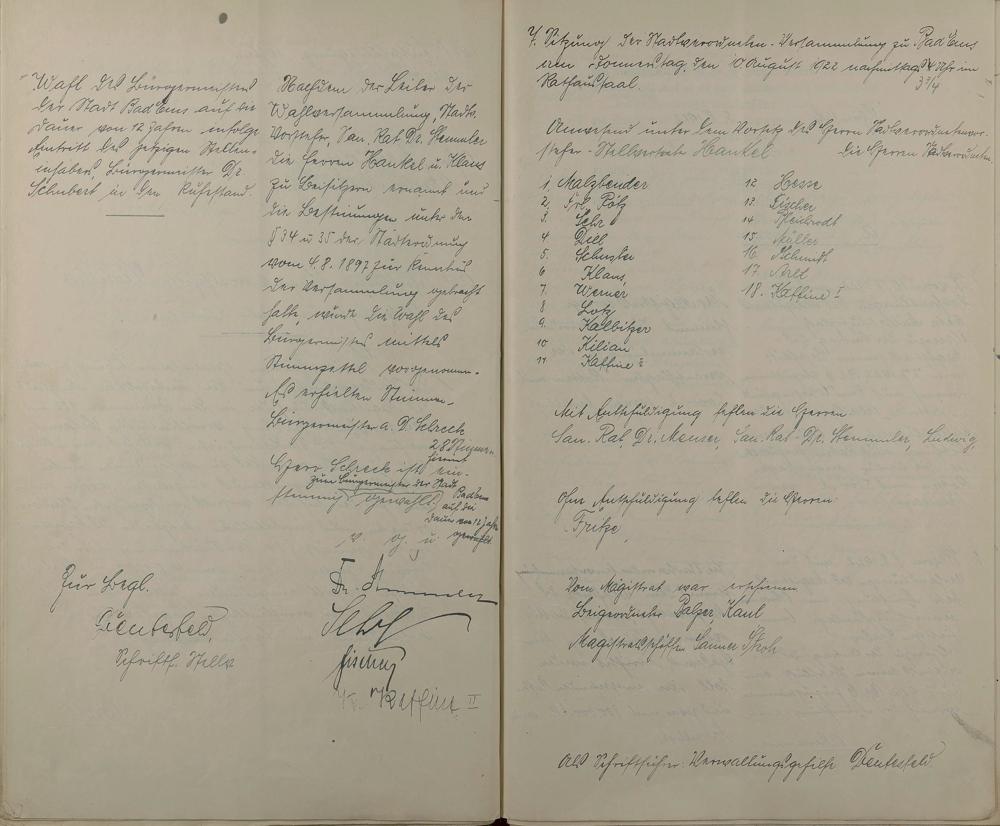 Wahl des Bürgermeisters
der Stadt Bad Ems auf die
Dauer von 12 Jahren infolge
Eintritt des jetzigen Stellen-
inhabers, Bürgermeister Dr.
Schubert in den Ruhestand.
Nachdem der Leiter der
Wahlversammlung, Stadtv.
Vorsteher, San. Rat Dr. Stemmler
die Herren Hankel u. Klaus
zu Beisitzern ernannt und
die Bestimmungen unter den
§ 34 u 35 der Städteordnung
vom 4. 8. 1897 zur Kenntnis
der Versammlung gebracht
hatte, wurde die Wahl des
Bürgermeisters mittels
Stimmzettel vorgenommen.
Es erhielten Stimmen
Bürgermeister a. D. Schreck
28 Stimmen
Herr Schreck ist somit ein-
zum Bürgermeister der Stadt Bad Ems
stimmig gewählt. auf die
Dauer von 12 Jahren
gewählt.
v. g. u.
Dr. Stemmler
Fischer
Kaffine II
Zur Begl.
Deutesfeld,
Schriftf. Stellv
7. Sitzung der Stadtverordneten-Versammlung zu Bad Ems
am Donnerstag, den 10 August 1922 nachmittags 4 Uhr im
3 3/4
Rathaussaal.
Anwesend unter dem Vorsitz des Herrn Stadtverordnetenvor-
steher-Stellvertreter Hankel die Herren Stadtverordneten
1. Malzbender
2. Frl. Rötz
3. Sehr
4. Dill
5. Schuster
6 Klaus,
7. Werner
8 Lotz
9. Kalbitzer
10 Kilian
11 Kaffine 2
12 Hesse
13. Fischer
14 Heilrodt
15. Müller
16. Schmidt
17. Arlt
18. Kaffine I
Mit Entschuldigung fehlen die Herren
San. Rat. Dr. Meuser, San. Rat Dr. Stemmler, Ludwig,
Ohne Entschuldigung fehlen die Herren
Fritze,
Vom Magistrat war erschienen
Beigeordneter Balzer, Kaul,
Magistratsschöffen Sanner, Stroh
Als Schriftführer: Verwaltungsgehilfe Deutesfeld.